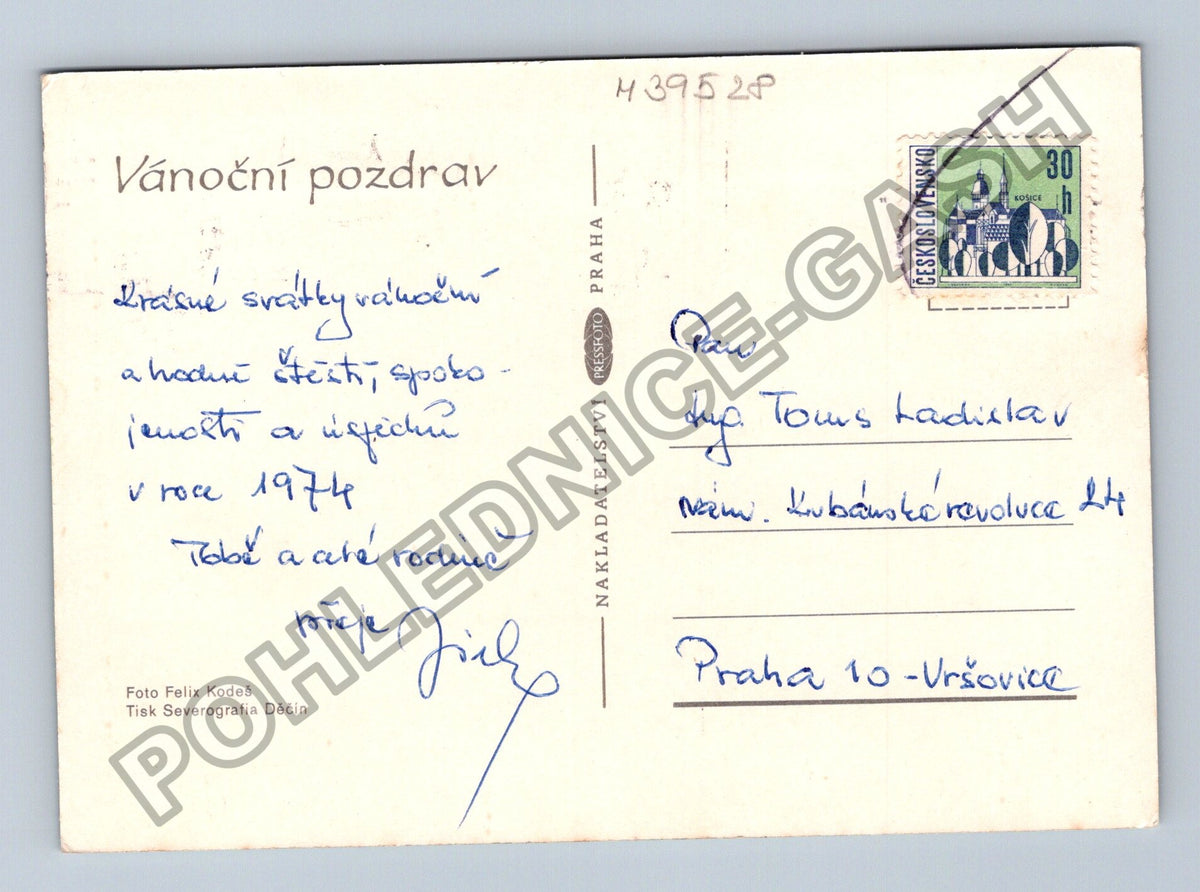 H 395 28
Vánoční pozdrav
Krásné svátky vánoční
a hodně štěstí, spoko-
jenosti a úspěchů
v roce 1974
Tobě a celé rodině
přeje
Foto Felix Kodeš
Tisk Severografia Děčín
NAKLADATELSTVÍ PRESSFOTO PRAHA
ČESKOSLOVENSKO
30
h
KOŠICE
Pan
Ing. Toms Ladislav
nám. Kubánské revoluce 24
Praha 10 - Vršovice
POHLEDNICE-GASH